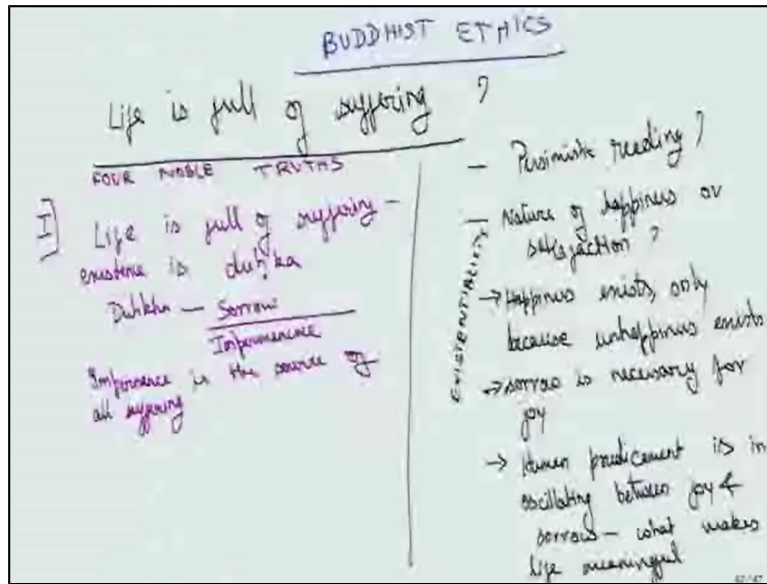 BUDDHIST ETHICS
Life is full of suffering ?
FOUR NOBLE TRUTHS
I] Life is full of suffering –
existence is duḥka
Duhkha — Sorrow
Impermanence
Impernence is the source of
all suffering
EXISTENTIALISTS
– Pessimistic reading ?
– Nature of happiness or
satisfaction ?
→ Happiness exists, only
because unhappiness exists
→ sorrow is necessary for
joy
→ Human predicament is in
oscillating between joy &
sorrow – what makes
life meaningful